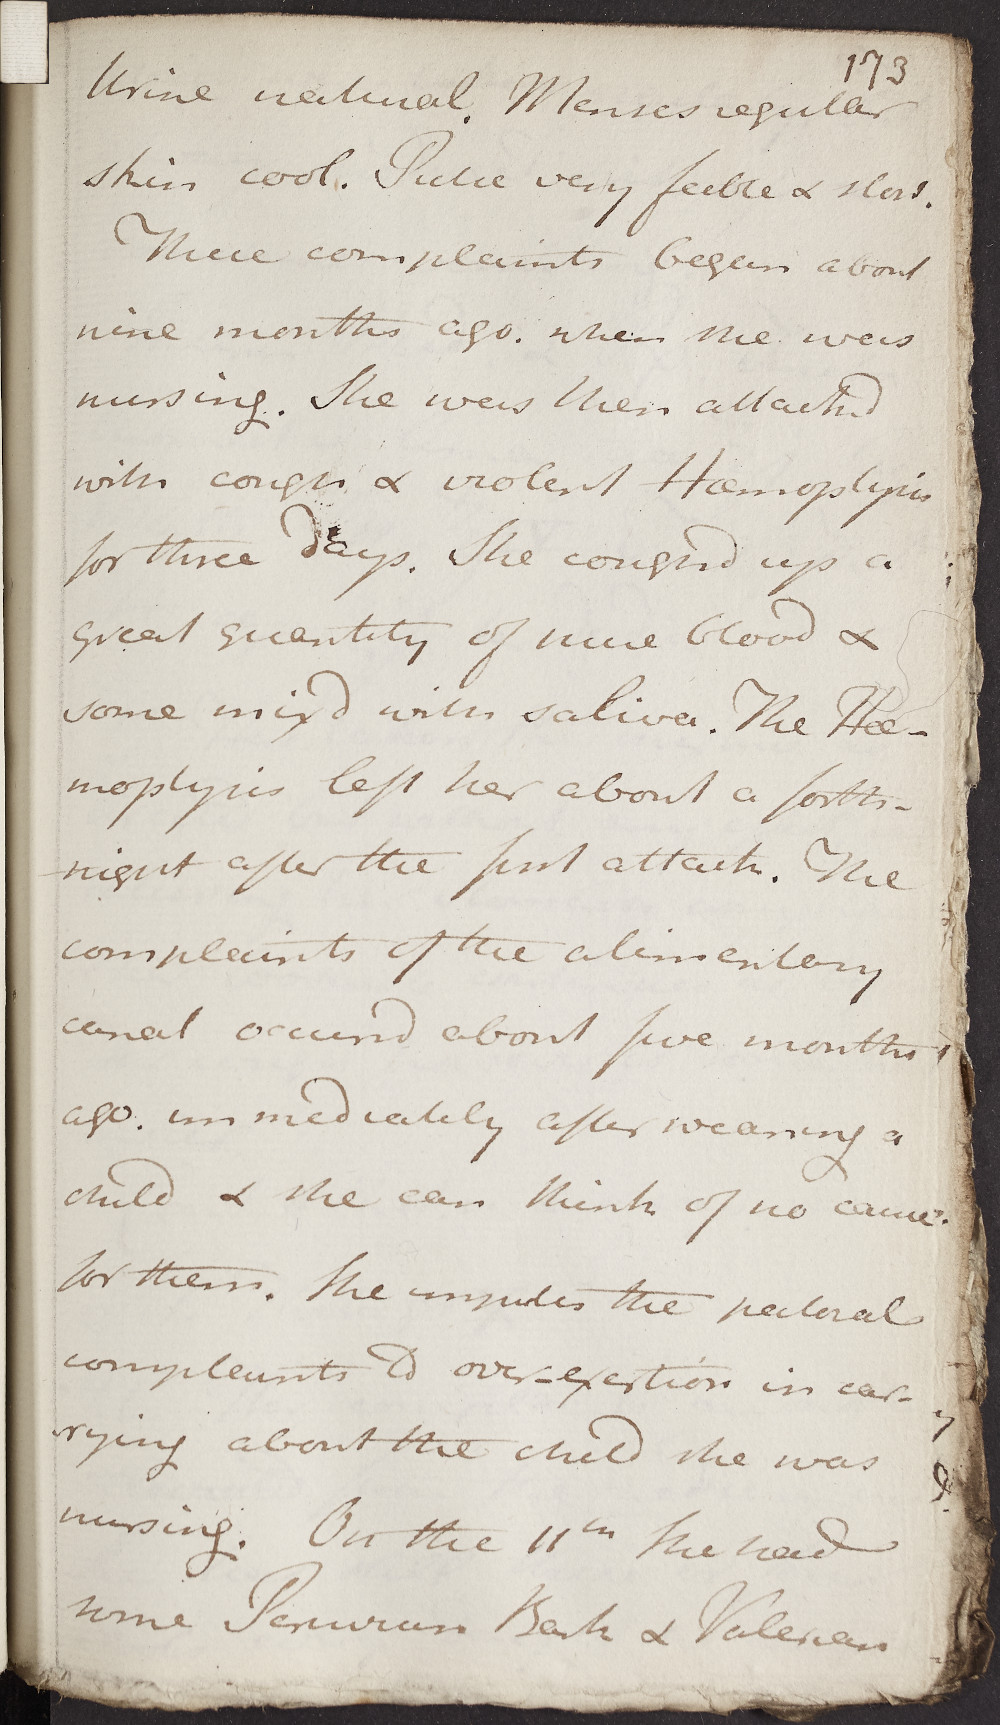 173
Urine natural. Menses regular
skin cool. Pulse very feeble & slow.
These complaints began about
nine months ago. when she was
nursing. She was then attackd
with cough & violent Hæmoptysis
for three days. She coughd up a
great quantity of pure blood &
some mixd with saliva. The Hæ-
moptysis left her about a forth-
night after the first attack. The
complaints of the alimentary
canal occurd about five months
ago. immediately after weaning a
child & she can think of no cause
for them. She imputes the pectoral
complaints to over-exertion in car-
rying about the child she was
nursing. On the 11th She had
some Peruvian Bark & Valerian